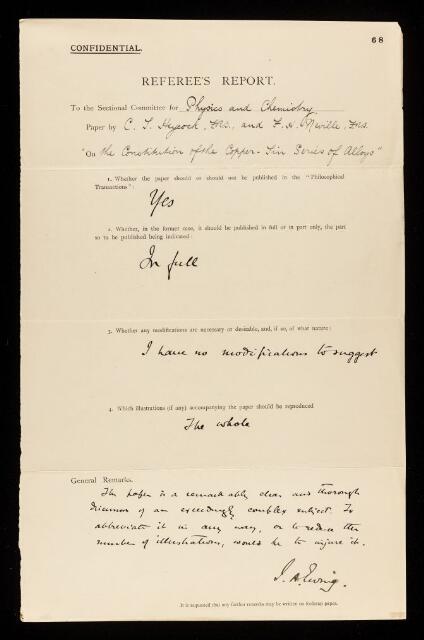 68
CONFIDENTIAL.
REFEREE'S REPORT.
To the Sectional Committee for Physics and Chemistry
Paper by C. T. Heycock, FRS., and F. H. Neville, FRS.
"On the Constitution of the Copper-Tin Series of Alloys"
1. Whether the paper should or should not be published in the "Philosophical
Transactions":
Yes
2. Whether, in the former case, it should be published in full or in part only, the part
so to be published being indicated:
In full
3. Whether any modifications are necessary or desirable, and, if so, of what nature:
I have no modifications to suggest
4. Which illustrations (if any) accompanying the paper should be reproduced
The whole
General Remarks.
The paper is a remarkably clear and thorough
discussion of an exceedingly complex subject. To
abbreviate it in any way, or to reduce the
number of illustrations, would be to injure it.
J. A. Ewing.
It is requested that any further remarks may be written on foolscap paper.